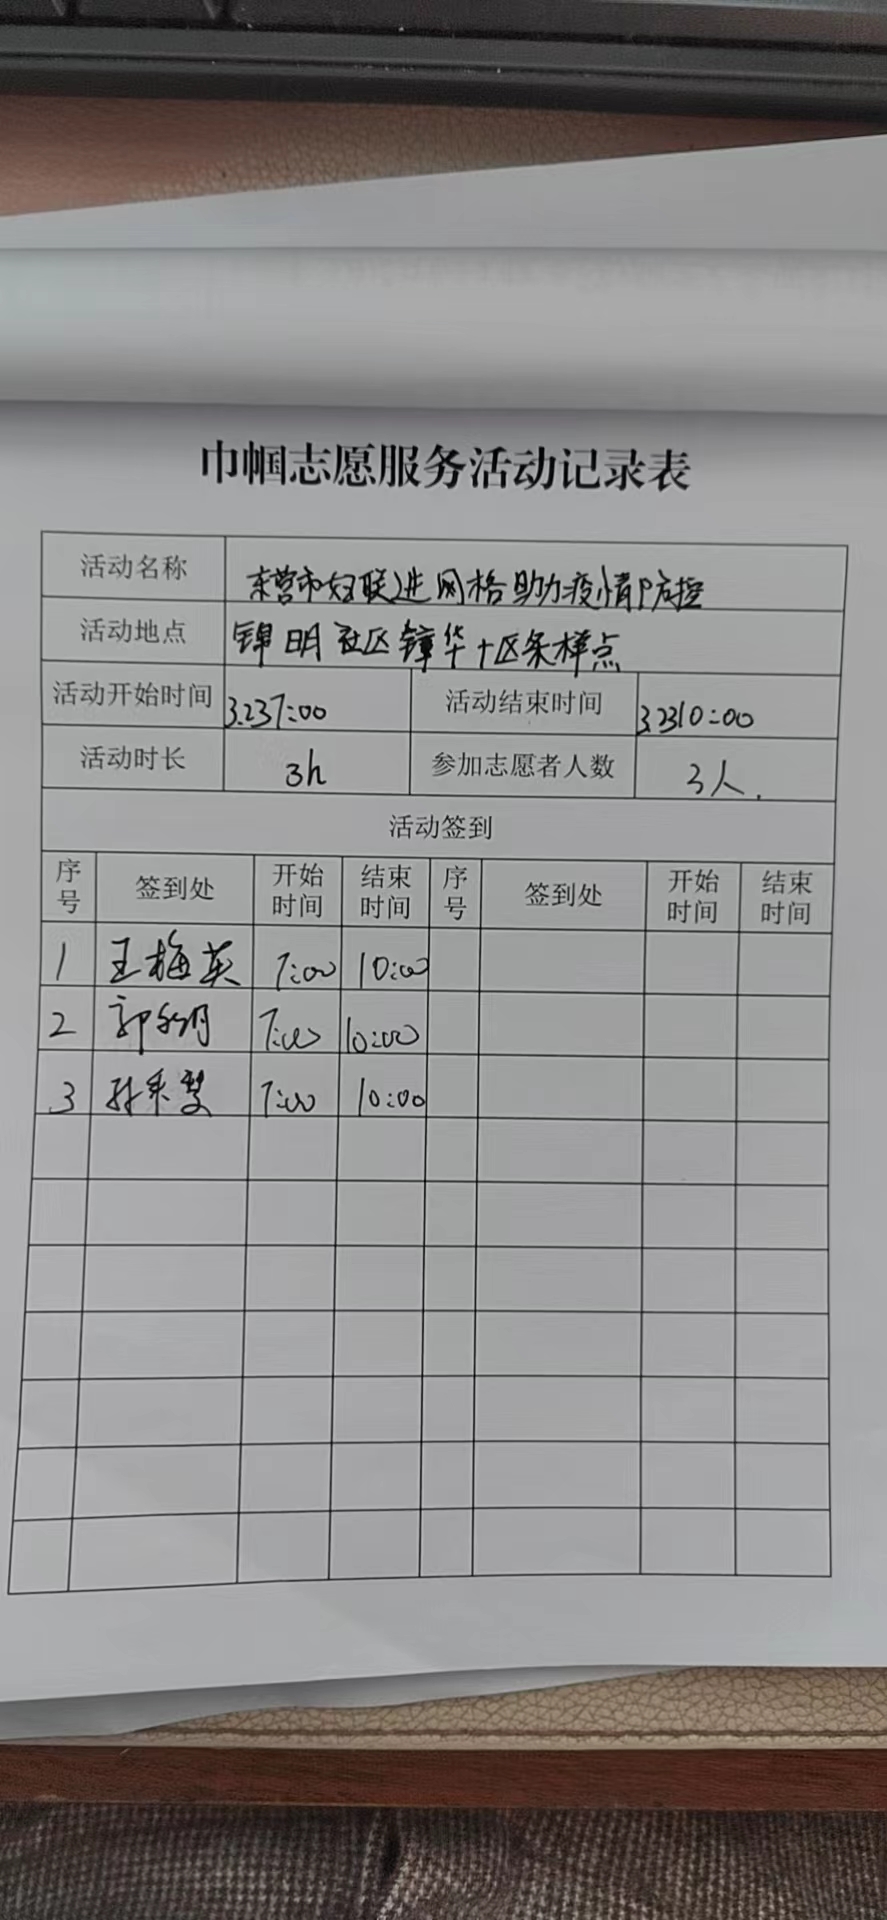 巾帼志愿服务活动记录表
活动名称 东营市妇联进网格助力疫情防控
活动地点 锦明社区锦华十区采样点
活动开始时间 3.237:00 活动结束时间 3.2310:00
活动时长 3h 参加志愿者人数 3人.
活动签到
序号 签到处 开始时间 结束时间 序号 签到处 开始时间 结束时间
1 王梅英 7:00 10:00
2 郭 7:00 10:00
3 孙 7:00 10:00